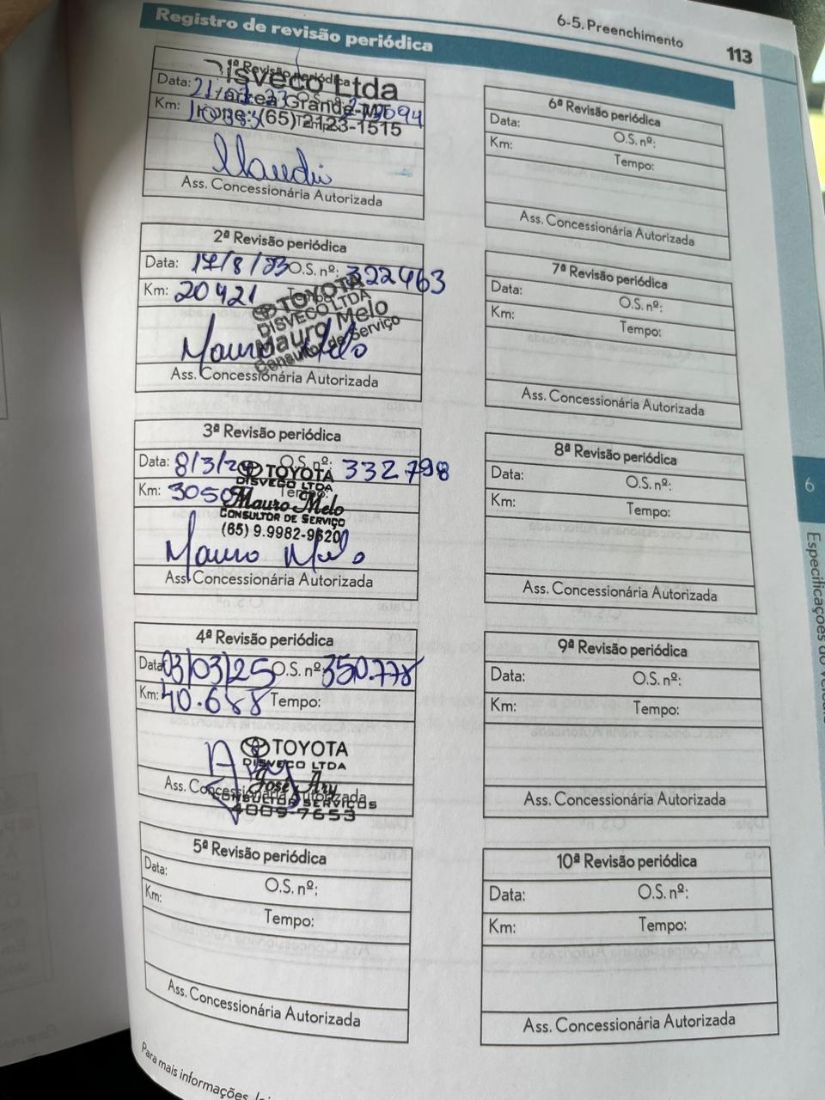 Registro de revisão periódica
6-5. Preenchimento
113
1ª Revisão periódica
Disveco Ltda
Data: 21
O.S. nº:
Várzea Grande-MT
Km:
Fone: (65) 2123-1515
Ass. Concessionária Autorizada
2ª Revisão periódica
Data: 17/8/23 O.S. nº: 322463
Km: 20421 Tempo:
TOYOTA
DISVECO LTDA
Mauro Melo
Consultor de Serviço
Mauro Melo
Ass. Concessionária Autorizada
3ª Revisão periódica
Data: 8/3/2 O.S. nº: 332798
Km: 3050 Tempo:
TOYOTA
DISVECO LTDA
Mauro Melo
CONSULTOR DE SERVIÇO
(65) 9.9982-9620
Mauro Melo
Ass. Concessionária Autorizada
4ª Revisão periódica
Data: 03/03/25 O.S. nº: 350.778
Km: 40.688 Tempo:
TOYOTA
DISVECO LTDA
José Ary
CONSULTOR SERVIÇOS
4009-7653
Ass. Concessionária Autorizada
5ª Revisão periódica
Data:
O.S. nº:
Km:
Tempo:
Ass. Concessionária Autorizada
Para mais informações,
6ª Revisão periódica
Data:
O.S. nº:
Km:
Tempo:
Ass. Concessionária Autorizada
7ª Revisão periódica
Data:
O.S. nº:
Km:
Tempo:
Ass. Concessionária Autorizada
8ª Revisão periódica
Data:
O.S. nº:
Km:
Tempo:
Ass. Concessionária Autorizada
9ª Revisão periódica
Data:
O.S. nº:
Km:
Tempo:
Ass. Concessionária Autorizada
10ª Revisão periódica
Data:
O.S. nº:
Km:
Tempo:
Ass. Concessionária Autorizada
6
Especificações do veículo